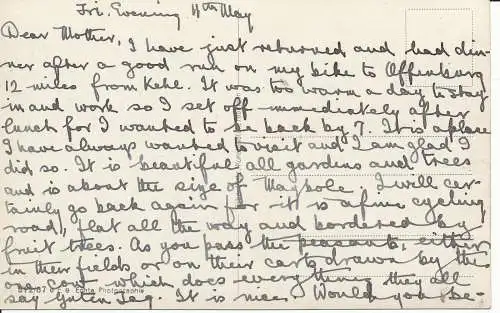 Fri. Evening 11th May
Dear Mother, I have just returned and had din-
ner after a good run on my bike to Offenburg
12 miles from Kehl. It was too warm a day to stay
in and work so I set off immediately after
lunch for I wanted to be back by 7. It is a place
I have always wanted to visit and I am glad I
did so. It is beautiful all gardens and trees
and is about the size of Maybole. I will cer-
tainly go back again for it is a fine cycling
road, flat all the way and bordered by
fruit trees. As you pass the peasants, either
in their fields or on their carts drawn by the
one cow which does everything they all
say Guten Tag. It is nice. Would you be-
Echte Photographie